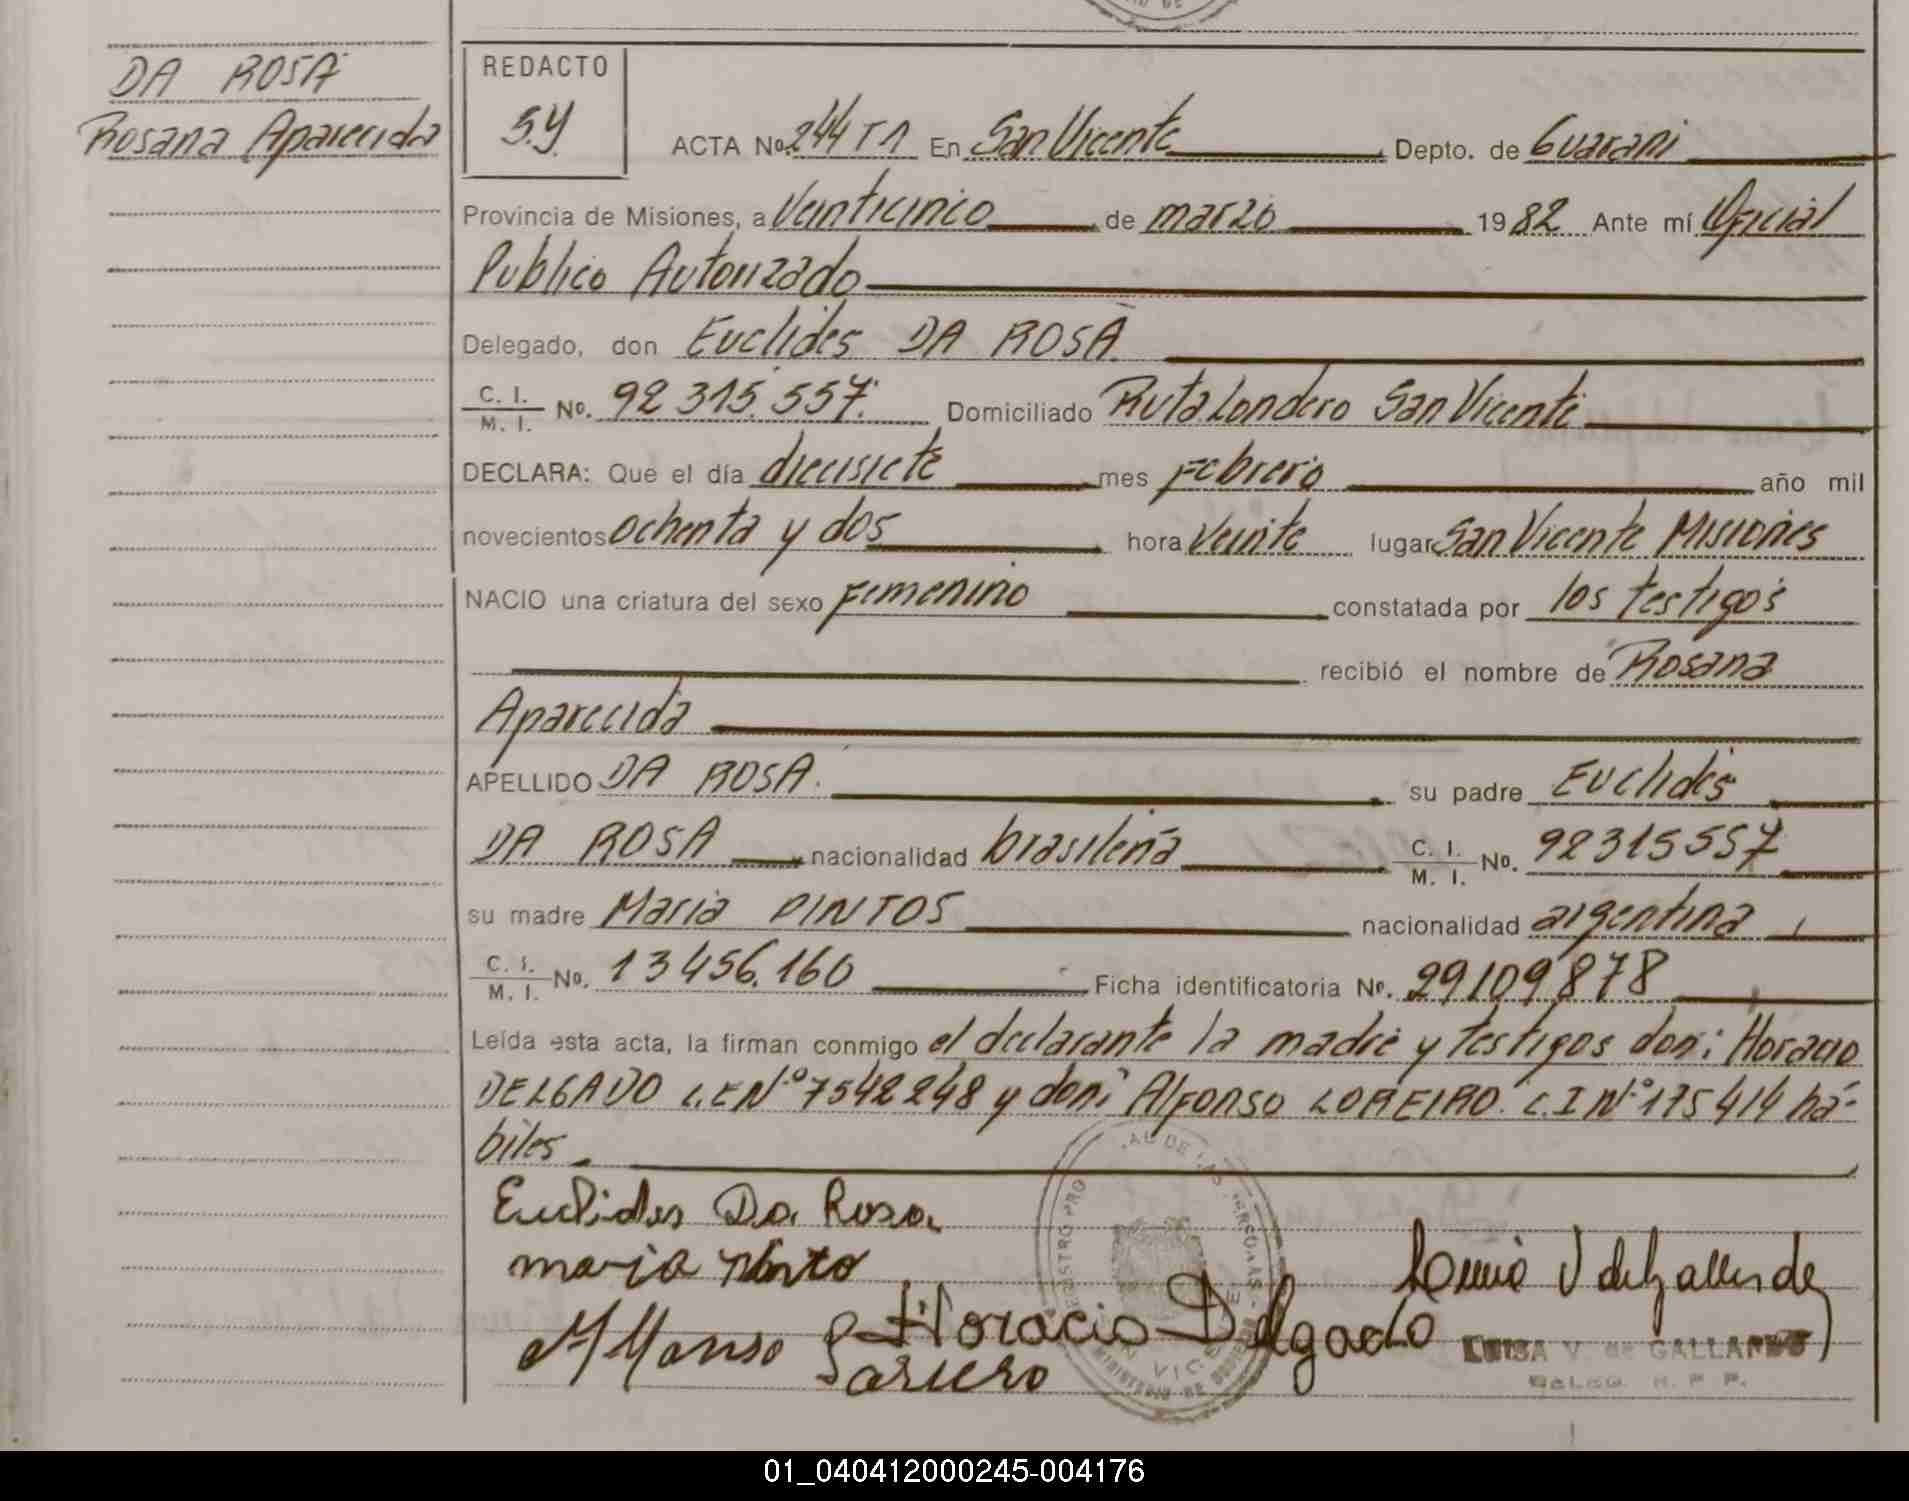 DA ROSA
Rosana Aparecida
REDACTO
S.Y.
ACTA No. 244 T1 En San Vicente Depto. de Guarani
Provincia de Misiones, a Veinticinco de marzo 1982 Ante mí Oficial
Publico Autorizado
Delegado, don Euclides DA ROSA
C. I. / M. I. No. 92 315.557. Domiciliado Ruta Londero San Vicente
DECLARA: Que el día diecisiete mes Febrero año mil
novecientos ochenta y dos hora Veinte lugar San Vicente Misiones
NACIO una criatura del sexo Femenino constatada por los testigos
recibió el nombre de Rosana
Aparecida
APELLIDO DA ROSA. su padre Euclides
DA ROSA nacionalidad brasileña C. I. / M. I. No. 92315557
su madre Maria PINTOS nacionalidad argentina
C. I. / M. I. No. 13456.160 Ficha identificatoria No. 29109878
Leída esta acta, la firman conmigo el declarante la madre y testigos don: Horacio
DELGADO L.E Nº 7542248 y don: Alfonso LOREIRO. C.I Nº 175414 há-
biles.
Euclides Da Rosa
maria Pinto
Horacio Delgado
LUISA V. de GALLARDO
01_040412000245-004176